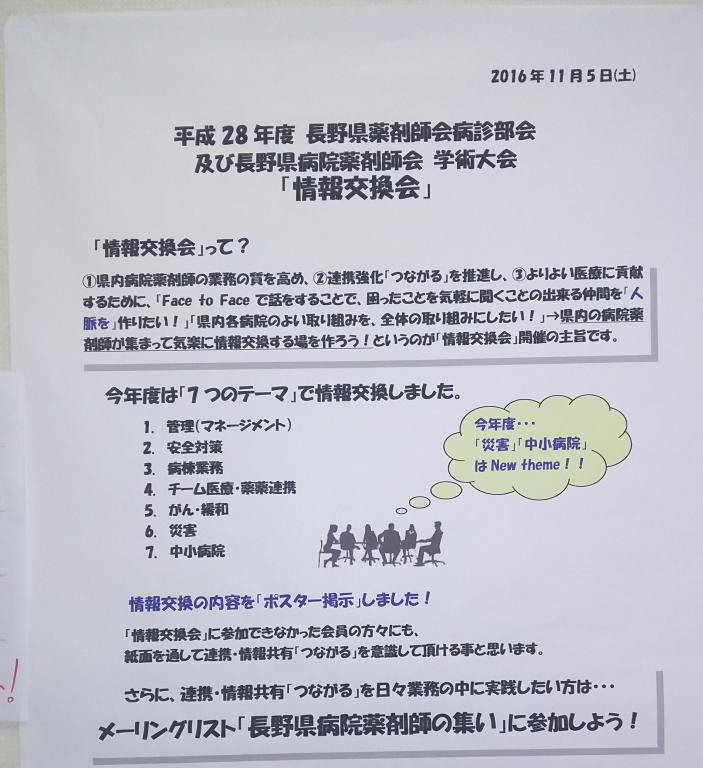 2016年11月5日(土)
平成28年度 長野県薬剤師会病診部会
及び長野県病院薬剤師会 学術大会
「情報交換会」
「情報交換会」って?
①県内病院薬剤師の業務の質を高め、②連携強化「つながる」を推進し、③よりよい医療に貢献
するために、「Face to Face で話をすることで、困ったことを気軽に聞くことの出来る仲間を「人
脈を」作りたい!」「県内各病院のよい取り組みを、全体の取り組みにしたい!」→県内の病院薬
剤師が集まって気楽に情報交換する場を作ろう!というのが「情報交換会」開催の主旨です。
今年度は「7つのテーマ」で情報交換しました。
1. 管理(マネージメント)
2. 安全対策
3. 病棟業務
4. チーム医療・薬薬連携
5. がん・緩和
6. 災害
7. 中小病院
今年度・・・
「災害」「中小病院」
はNew theme!!
情報交換の内容を「ポスター掲示」しました!
「情報交換会」に参加できなかった会員の方々にも、
紙面を通して連携・情報共有「つながる」を意識して頂ける事と思います。
さらに、連携・情報共有「つながる」を日々業務の中に実践したい方は・・・
メーリングリスト「長野県病院薬剤師の集い」に参加しよう!